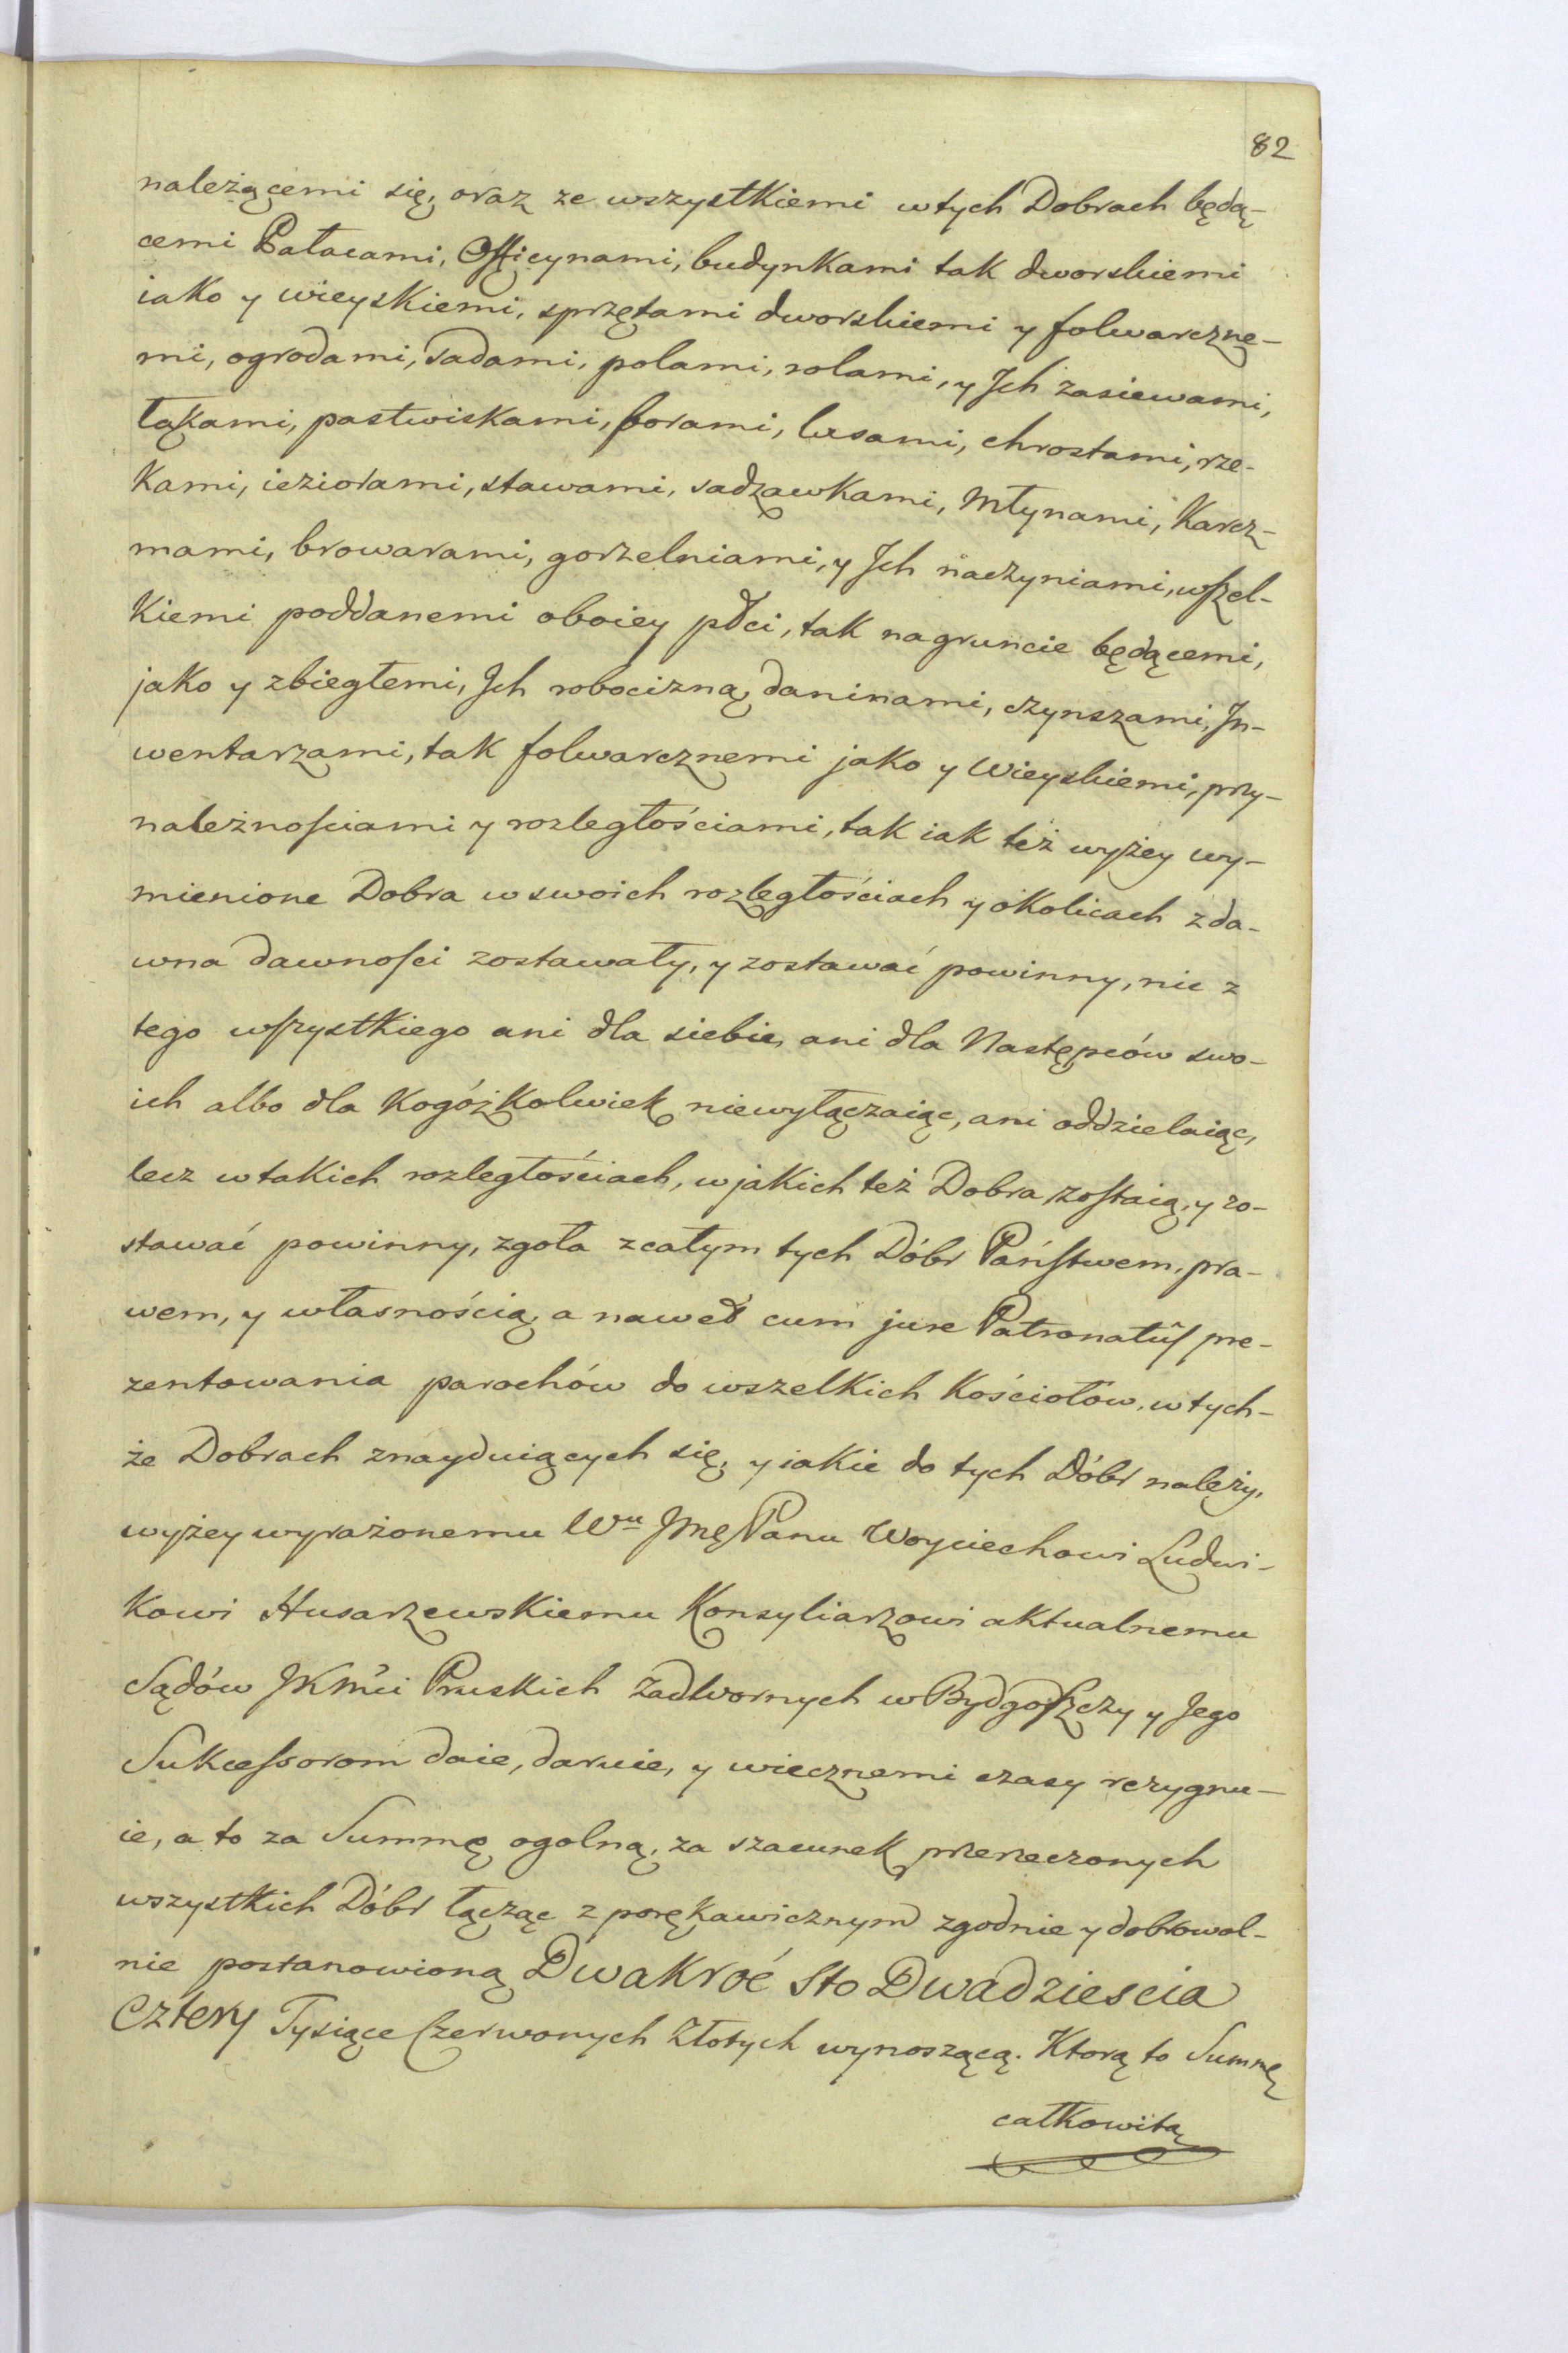 82
należącemi się, oraz ze wszystkiemi wtych Dobrach będą-
cemi Pałacami, Officynami, budynkami tak dworskiemi
iako y wieyskiemi, sprzętami dworskiemi y folwarczne-
mi, ogrodami, sadami, polami, rolami, y Jch zasiewami,
łąkami, pastwiskami, borami, lasami, chrostami, rze-
kami, ieziorami, stawami, sadzawkami, Młynami, Karcz-
mami, browarami, gorzelniami, y Jch naczyniami, wszel-
kiemi poddanemi oboiey płci, tak nagruncie będącemi,
jako y zbiegłemi, Jch robocizną, daninami, czynszami, Jn-
wentarzami, tak folwarcznemi jako y Wieyskiemi, przy-
należnościami y rozległościami, tak iak też wyżey wy-
mienione Dobra w swoich rozległościach y okolicach zda-
wna dawności zostawały, y zostawać powinny, nic z
tego wszystkiego ani dla siebie, ani dla Następców swo-
ich albo dla kogóżkolwiek niewyłączaiąc, ani oddzielaiąc,
lecz wtakich rozległościach, wjakich też Dobra zostaią, y zo-
stawać powinny, zgoła zcałym tych Dóbr Państwem, pra-
wem, y własnością, a nawet cum jure Patronatûs pre-
zentowania parochów do wszelkich Kościołów, wtych-
że Dobrach znayduiących się, y iakie do tych Dóbr należy,
wyżey wyrażonemu Wu JMę Panu Woyciechowi Ludwi-
kowi Husarzewskiemu Konsyliarzowi aktualnemu
Sądów JKMci Pruskich Zadwornych w Bydgoszczy y Jego
Sukcessorom daie, daruie, y wiecznemi czasy rezygnu-
ie, a to za Summę ogolną, za szacunek przerzeczonych
wszystkich Dóbr łącząc z porękawicznym zgodnie y dobrowol-
nie postanowioną Dwakroć Sto Dwadziescia
Cztery Tysiące Czerwonych Złotych wynoszącą. Ktorą to Summę
całkowitą